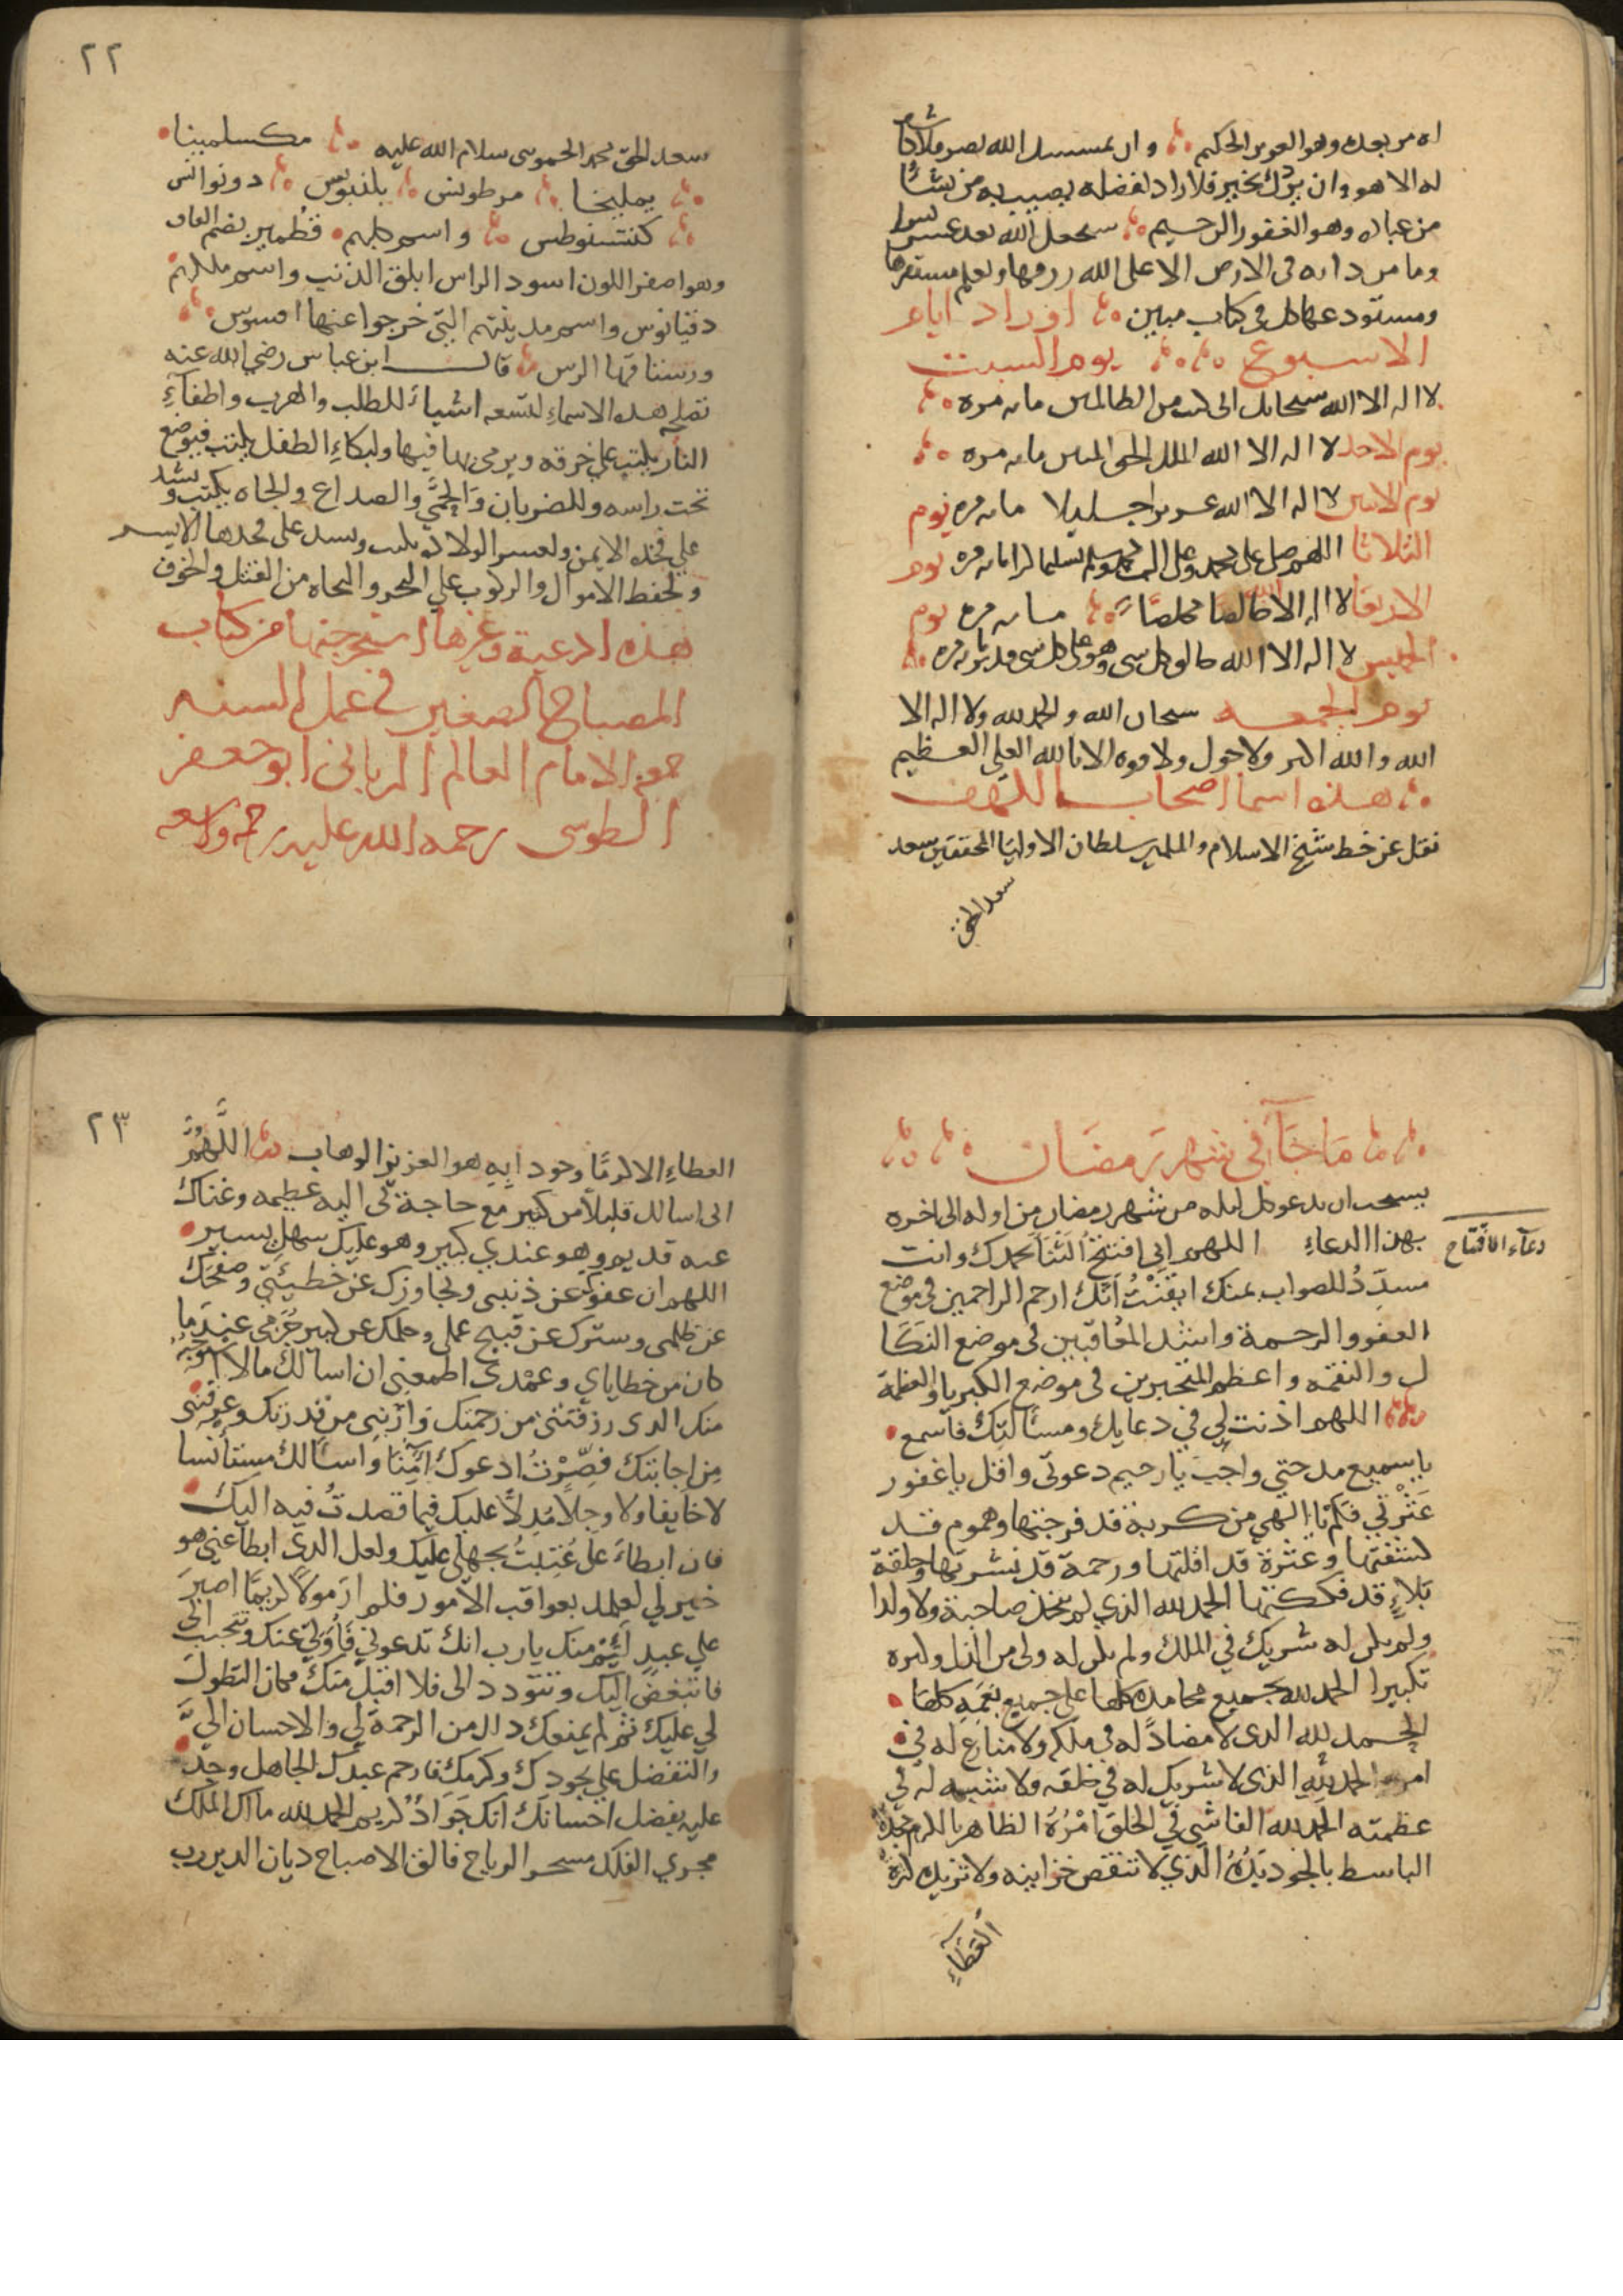 له من بعده وهو العزيز الحكيم وان يمسسك الله بضر فلا كاشف
له الا هو وان يردك بخير فلا راد لفضله يصيب به من يشاء
من عباده وهو الغفور الرحيم سيجعل الله بعد عسر يسرا
وما من دابه فى الارض الا على الله رزقها ويعلم مستقرها
ومستودعها كل فى كتاب مبين اوراد ايام
الاسبوع يوم السبت
لا اله الا الله سبحانك انى كنت من الظالمين مايه مره
يوم الاحد لا اله الا الله الملك الحق المبين مايه مره
يوم الاثنين لا اله الا الله عزيزا جليلا مايه مره يوم
الثلاثا اللهم صل على محمد وعلى ال محمد وسلم تسليما كثيرا مايه مره يوم
الاربعا لا اله الا الله خالصا مخلصا مايه مره يوم
الخميس لا اله الا الله خالق كل شى وهو على كل شى قدير مايه مره
يوم الجمعه سبحان الله والحمد لله ولا اله الا
الله والله اكبر ولا حول ولا قوه الا بالله العلى العظيم
هذه اسما اصحاب الكهف
نقل عن خط شيخ الاسلام والمسلمين سلطان الاوليا المحققين سعد
سعد الحق
٢٢
سعد الحق محمد الحموى سلام الله عليه مكسلمينا
يمليخا مرطونس بلنيونس دونوانس
كنتسنوطس واسم كلبهم قطمير بضم القاف
وهو اصفر اللون اسود الراس ابلق الذنب واسم ملكهم
دقيانوس واسم مدينتهم التى خرجوا عنها افسوس
ورستاقها الرس قال ابن عباس رضي الله عنه
تصلح هذه الاسماء لتسعه اشياء للطلب والهرب واطفآء
النار يكتب على خرقه ويرمى بها فيها ولبكاء الطفل يكتب فيوضع
تحت راسه وللضربان والحمى والصداع وللجاه يكتب ويشد
على فخذه الايمن ولعسر الولاده يكتب ويشد على فخذها الايسر
ولحفظ الاموال والركوب على البحر والنجاه من القتل والخوف
هذه ادعية وغيرها استخرجتها من كتاب
المصباح الصغير فى عمل السنه
جمع الامام العالم الربانى ابو جعفر
الطوسى رحمه الله عليه رحمة واسعه
ما جآء فى شهر رمضان
يستحب ان يدعو كل ليله من شهر رمضان من اوله الى اخره
بهذا الدعاء اللهم انى افتتح الثناء بحمدك وانت
دعآء الافتتاح
مسدد للصواب بمنك ايقنت انك ارحم الراحمين فى موضع
العفو والرحمة واشد المعاقبين فى موضع النكا
ل والنقمه واعظم المتجبرين فى موضع الكبريا والعظمة
اللهم اذنت لى فى دعايك ومسألتك فاسمع
يا سميع مدحتى واجب يا رحيم دعوتى واقل يا غفور
عثرتى فكم يا الهى من كربة قد فرجتها وهموم قد
كشفتها وعثرة قد اقلتها ورحمة قد نشرتها وحلقة
بلاء قد فككتها الحمد لله الذى لم يتخذ صاحبة ولا ولدا
ولم يكن له شريك فى الملك ولم يكن له ولى من الذل وكبره
تكبيرا الحمد لله بجميع محامده كلها على جميع نعمه كلها
الحمد لله الذى لا مضاد له فى ملكه ولا منازع له فى
امره الحمد لله الذى لا شريك له فى خلقه ولا شبيه له فى
عظمته الحمد لله الفاشى فى الخلق امره الظاهر بالكرم مجده
الباسط بالجود يده الذى لا تنقص خزاينه ولا تزيده كثرة
العطآء
٢٣
العطاء الا كرما وجودا انه هو العزيز الوهاب اللهم
انى اسالك قليلا من كثير مع حاجة بى اليه عظيمه وغناك
عنه قديم وهو عندى كثير وهو عليك سهل يسير
اللهم ان عفوك عن ذنبى وتجاوزك عن خطيئتى وصفحك
عن ظلمى وسترك عن قبيح عملى وحلمك عن كبير جرمى عند ما
كان من خطاياي وعمدى اطمعنى ان اسالك ما لا استوجبه
منك الذى رزقتنى من رحمتك واريتنى من قدرتك وعرفتنى
من اجابتك فصرت ادعوك آمنا واسالك مستأنسا
لا خايفا ولا وجلا مدلا عليك فيما قصدت فيه اليك
فان ابطاء على عتبت بجهلى عليك ولعل الذى ابطأ عنى هو
خير لى لعلمك بعواقب الامور فلم ار مولا كريما اصبر
على عبد لئيم منك يا رب انك تدعونى فاولى عنك وتتحبب الى
فاتبغض اليك وتتودد الى فلا اقبل منك فكان التطول
لى عليك ثم لم يمنعك ذلك من الرحمة لى والاحسان الى
والتفضل على بجودك وكرمك فارحم عبدك الجاهل وجد
عليه بفضل احسانك انك جواد كريم الحمد لله مالك الملك
مجرى الفلك مسخر الرياح فالق الاصباح ديان الدين رب